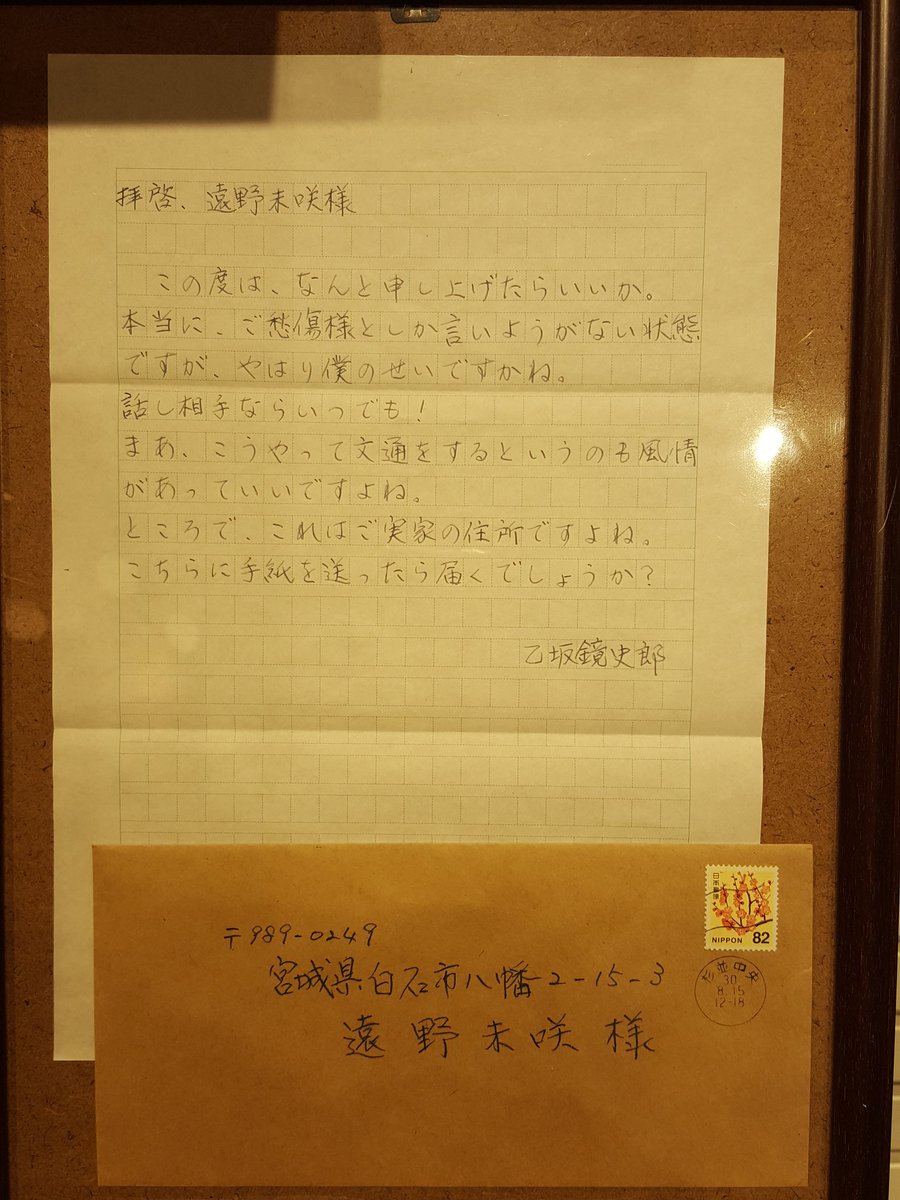 拝啓、遠野未咲様
この度は、なんと申し上げたらいいか。
本当に、ご愁傷様としか言いようがない状態
ですが、やはり僕のせいですかね。
話し相手ならいつでも！
まあ、こうやって文通をするというのも風情
があっていいですよね。
ところで、これはご実家の住所ですよね。
こちらに手紙を送ったら届くでしょうか？
乙坂鏡史郎
日本郵便
NIPPON 82
杉並中央
30
8.15
12-18
〒989-0249
宮城県白石市八幡2-15-3
遠野未咲様